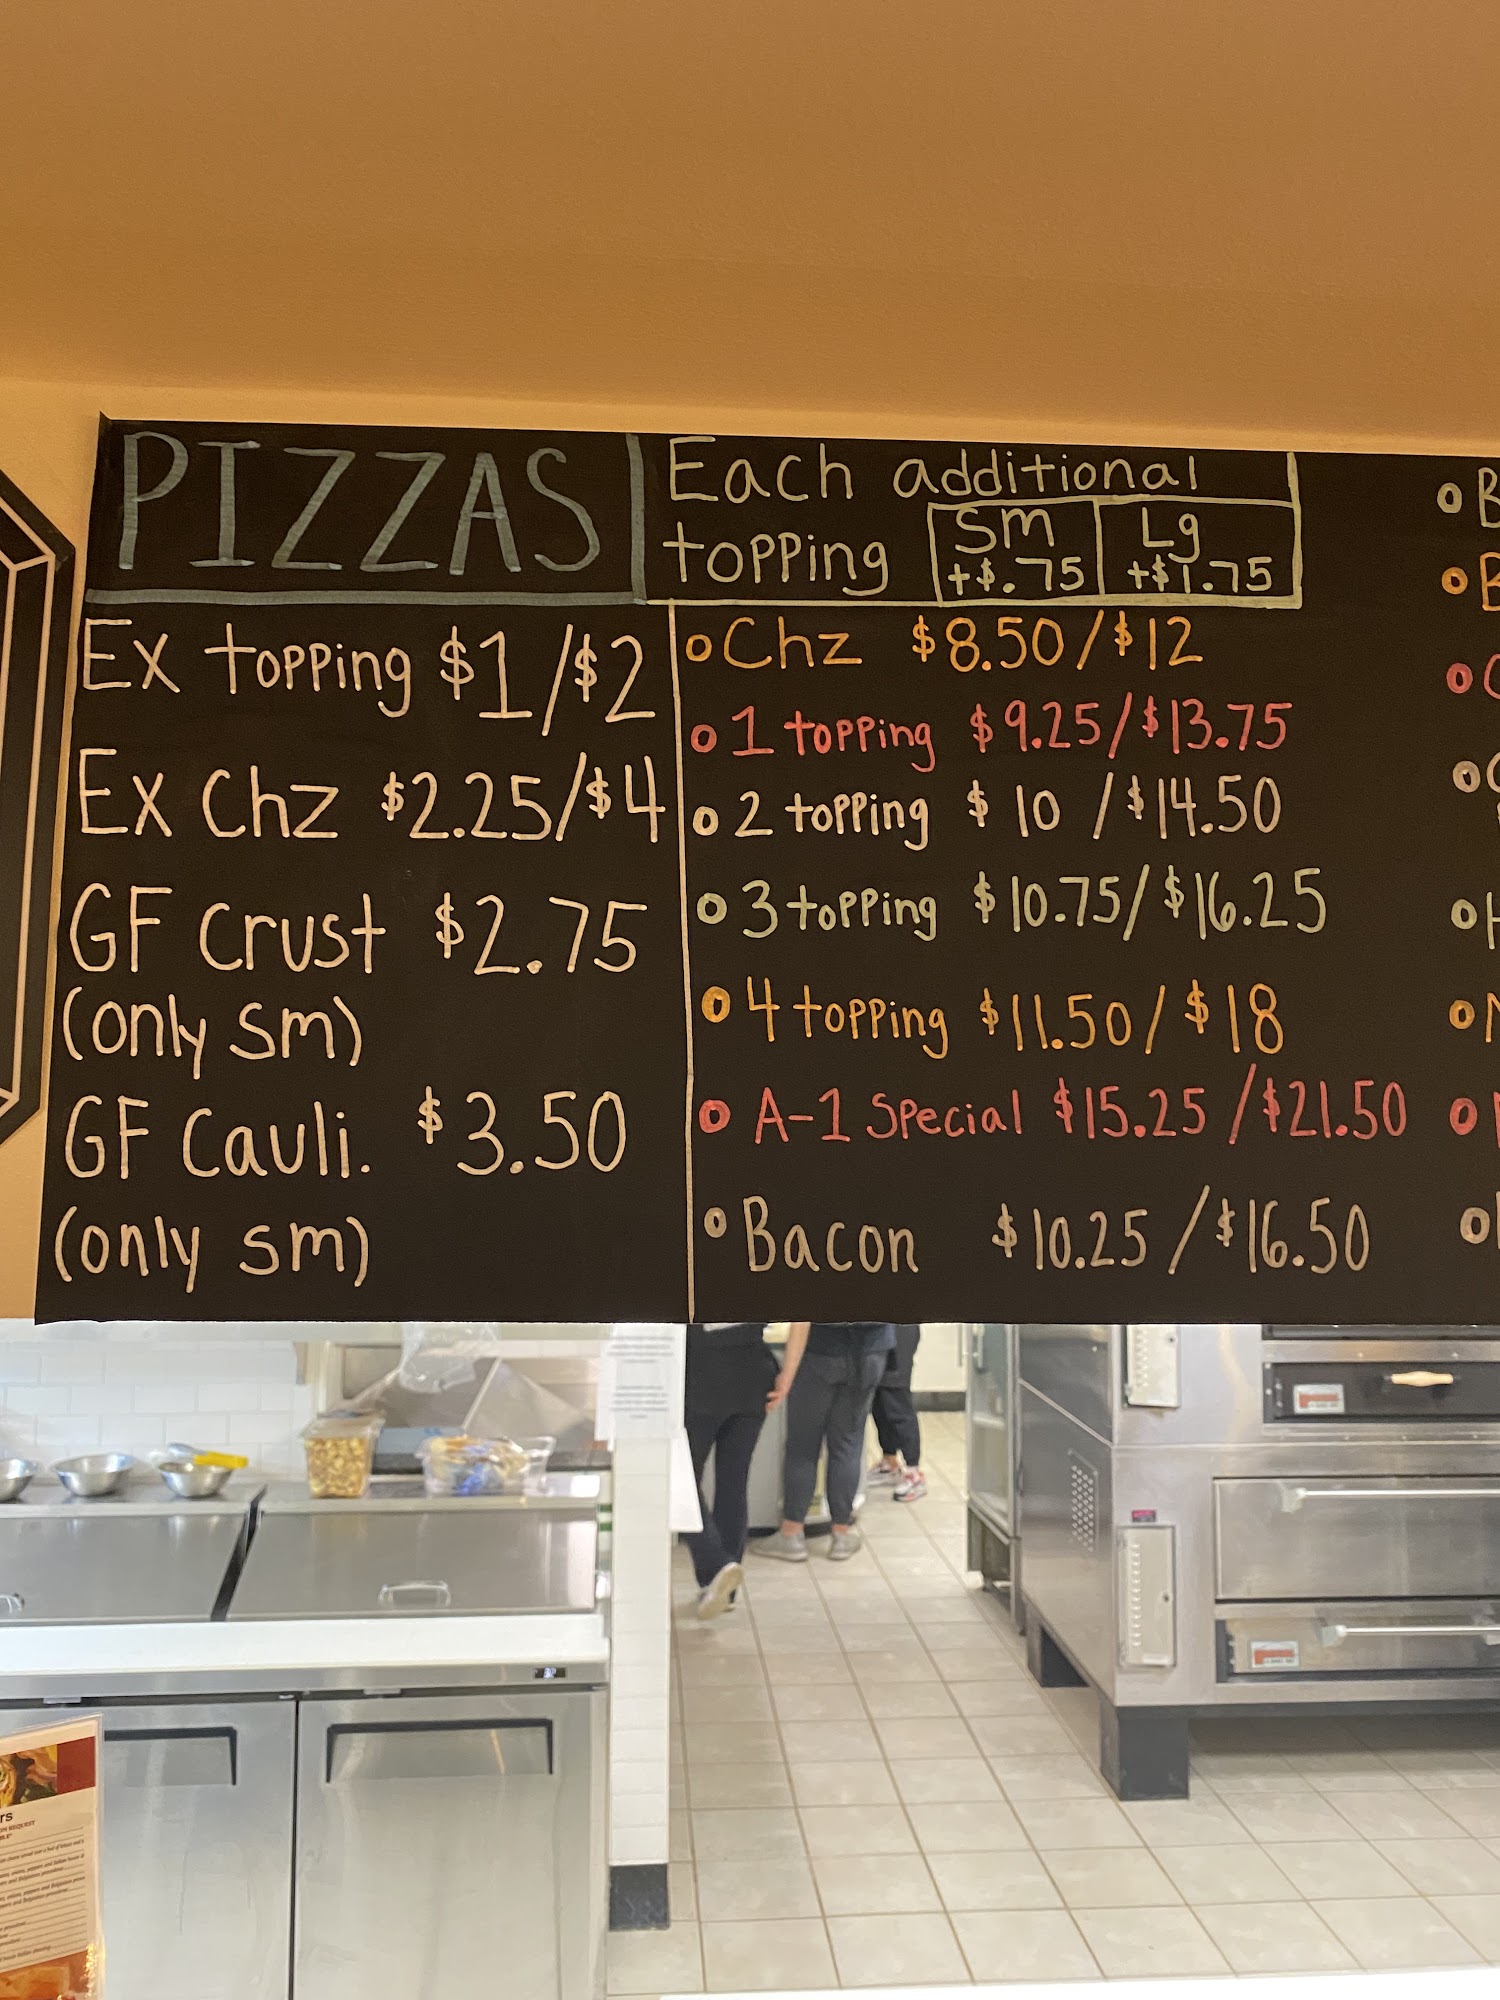 PIZZAS
Ex topping $1/$2
Ex Chz $2.25/$4
GF Crust $2.75
(only sm)
GF Cauli. $3.50
(only sm)
Each additional
topping
Sm
+$.75
Lg
+$1.75
Chz $8.50/$12
1 topping $9.25/$13.75
2 topping $10/$14.50
3 topping $10.75/$16.25
4 topping $11.50/$18
A-1 Special $15.25/$21.50
Bacon $10.25/$16.50